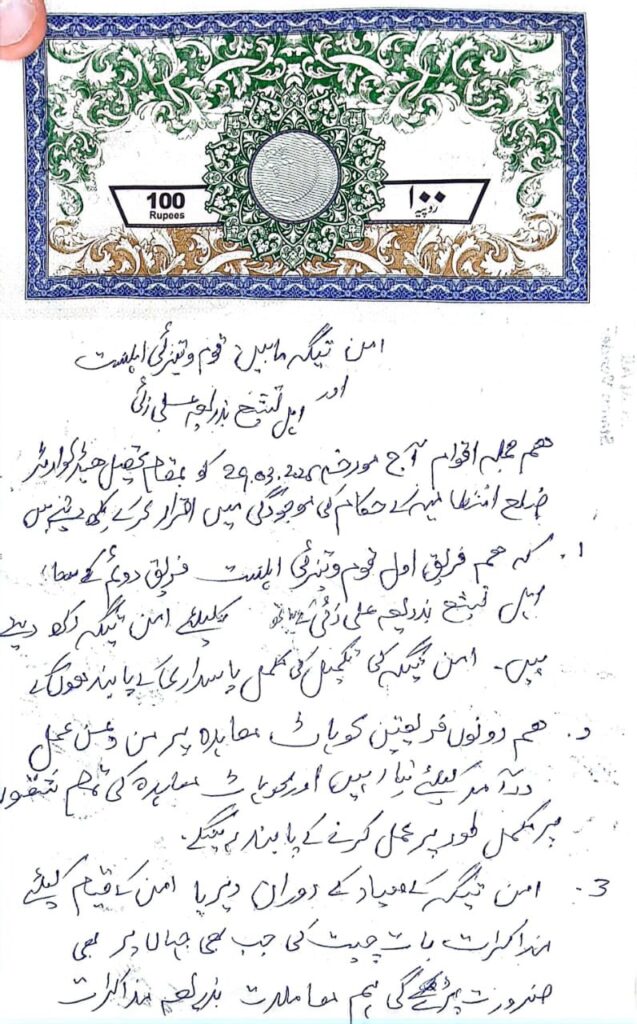 100
Rupees
۱۰۰
روپیہ
امن تیگہ مابین قوم وتیزئی اہلسنت
اور
اہل تشیع بذریعہ علی زئی
ھم جملہ اقوام آج مورخہ کو بمقام تحصیل ھیڈکوارٹر
ضلع انتظامیہ کے حکام کی موجودگی میں اقرار کرکے لکھ دیتے ہیں
1. کہ ھم فریق اول قوم وتیزئی اہلسنت فریق دوئم کے ساتھ
اہل تشیع بذریعہ علی زئی کیلئے امن تیگہ رکھ دیتے
ہیں۔ امن تیگہ کی تکمیل کی مکمل پاسداری کے پابند ھوں گے
ھم دونوں فریقین کوہاٹ معاہدہ پر من وعن عمل
درآمد کیلئے تیار ہیں اور کوہاٹ معاہدہ کی تمام شقوں
پر مکمل طور پر عمل کرنے کے پابند رہینگے۔
3. امن تیگہ کے میعاد کے دوران دیرپا امن کے قیام کیلئے
مذاکرات بات چیت کی جب بھی جہاں پر بھی
ضرورت پڑے گی ہم معاملات بذریعہ مذاکرات